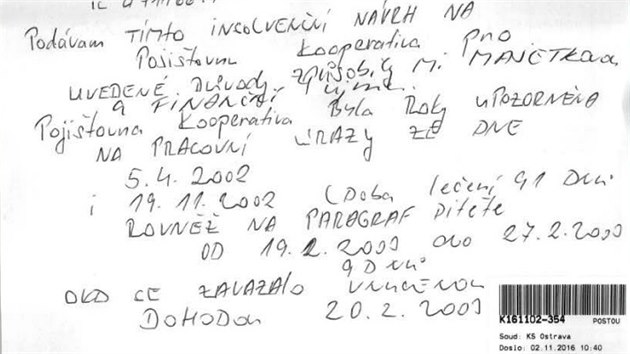 Podávám TÍMTO INSOLVENČNÍ NÁVRH NA
Pojišťovnu Kooperativa pro
UVEDENÉ Důvody, způsobily Mi MAJETKOVOU
A FINANČNÍ újmu.
Pojišťovna Kooperativa Byla Roky UPOZORNĚNA
NA PRACOVNÍ ÚRAZY ZE DNE
5.4.2002
i 19.11.2002 (Doba léčení 91 Dní
ROVNĚŽ NA PARAGRAF Dítěte
OD 19.2.2003 do 27.2.2003
9 Dní
OKD SE ZAVÁZALO
DOHODOU 20.2.2003
K161102-354 POSTOU
Soud: KS Ostrava
Doslo: 02.11.2016 10:40